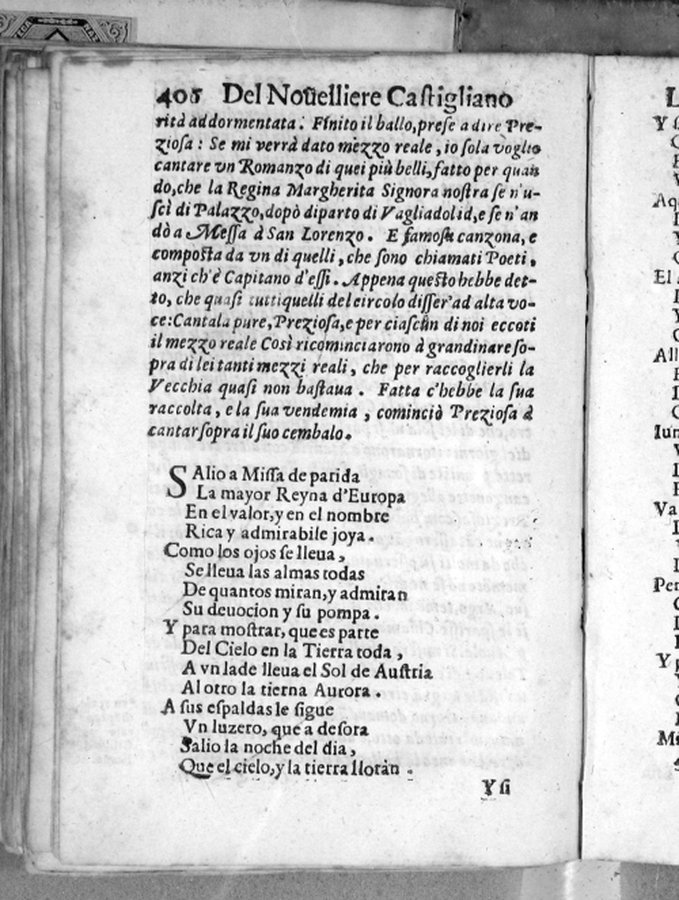 406 Del Novelliere Castigliano
rità addormentata. Finito il ballo, prese a dire Pre-
ziosa: Se mi verrà dato mezzo reale, io sola voglio
cantare vn Romanzo di quei più belli, fatto per quan
do, che la Regina Margherita Signora nostra se n'u-
scì di Palazzo, dopò diparto di Vagliadolid, e se n'an
dò a Messa à San Lorenzo. E famosa canzona, e
composta da vn di quelli, che sono chiamati Poeti,
anzi ch'è Capitano d'essi. Appena questo hebbe det-
to, che quasi tutti quelli del circolo disser' ad alta vo-
ce: Cantala pure, Preziosa, e per ciascũn di noi eccoti
il mezzo reale Così ricominciarono à grandinare so-
pra di lei tanti mezzi reali, che per raccoglierli la
Vecchia quasi non bastaua. Fatta c'hebbe la sua
raccolta, e la sua vendemia, cominciò Preziosa à
cantar sopra il suo cembalo.
SAlio a Missa de parida
La mayor Reyna d'Europa
En el valor, y en el nombre
Rica y admirabile joya.
Como los ojos se lleua,
Se lleua las almas todas
De quantos miran, y admiran
Su deuocion y su pompa.
Y para mostrar, que es parte
Del Cielo en la Tierra toda,
A vn lade lleua el Sol de Austria
Al otro la tierna Aurora.
A sus espaldas le sigue
Vn luzero, que a desora
Salio la noche del dia,
Que el cielo, y la tierra lloran.
Y si
L
Y s
Aq
El
All
Iun
Va
Per
Y
Mi